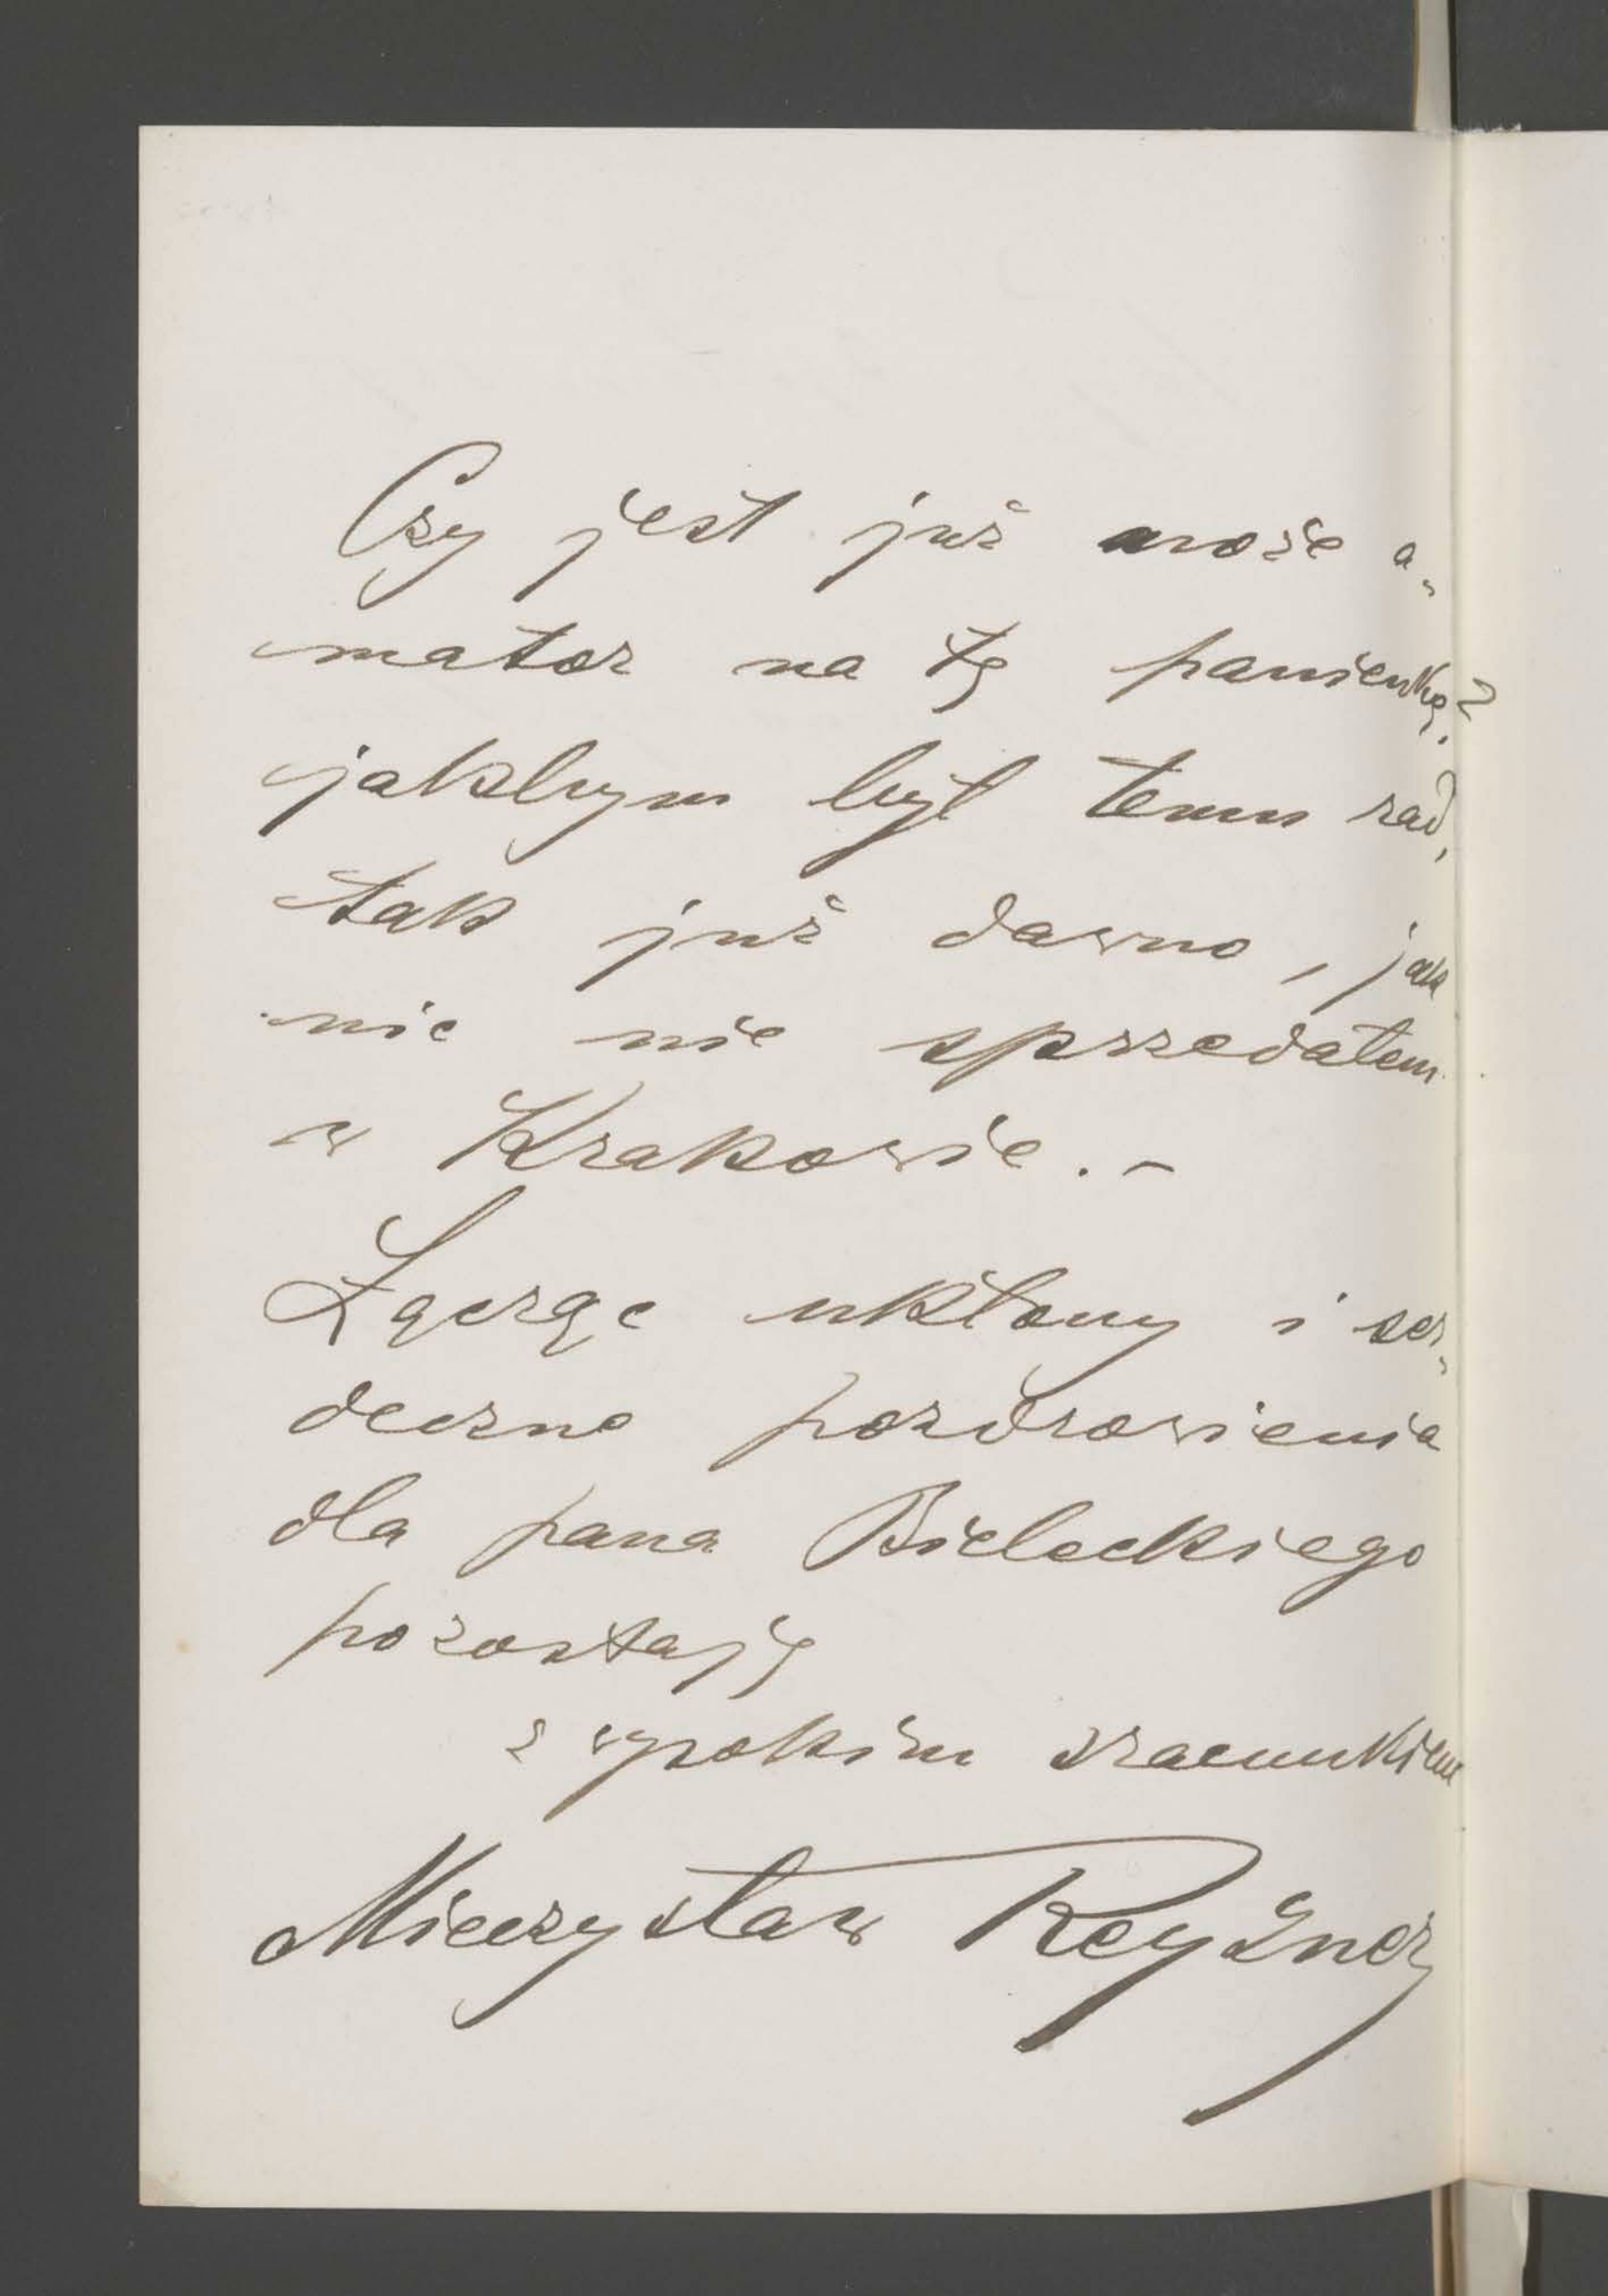 Czy jest już może a„
mator na tę panienkę?
jakbym był temu rad,
tak już dawno, jak
nic nie sprzedałem
w Krakowie. –
Łącząc ukłony i ser„
deczne pozdrowienia
dla pana Bieleckiego
pozostaję
z wysokim szacunkiem
Mieczysław Reyzner